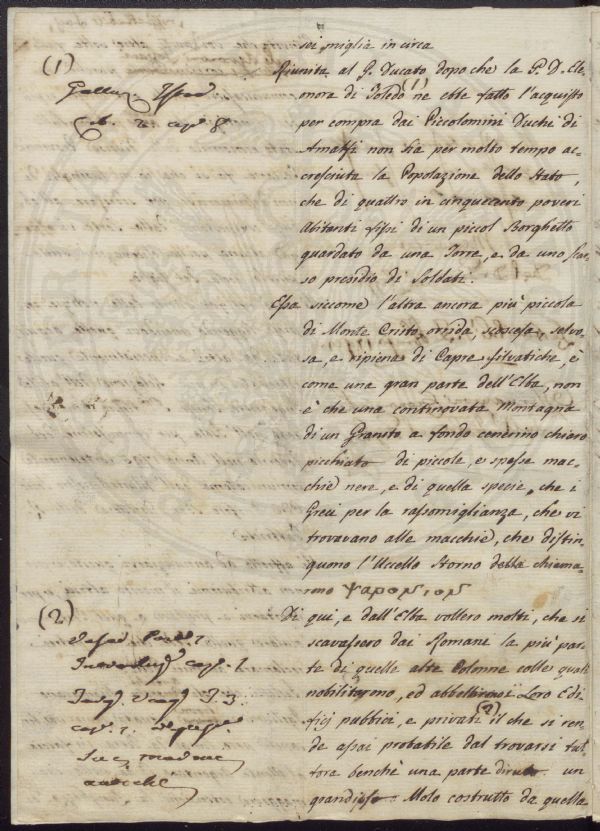 sei miglia in circa
Riunita al G. Ducato dopo che la P. D. Ele-
nora di Toledo (1) ne ebbe fatto l'acquisto
per compra dai Piccolomini Duchi di
Amalfi non ha per molto tempo ac-
cresciuta la Popolazione dello Stato,
che di quattro in cinquecento poveri
Abitanti fissi di un piccol Borghetto
guardato da una Torre, e da uno scar-
so presidio di Soldati.
Essa siccome l'altra ancora più piccola
di Monte Cristo orrida, scoscesa, selvo-
sa, e ripiena di Capre silvatiche, è
come una gran parte dell'Elba, non
è che una continovata Montagna
di un Granito a fondo cenerino chiaro
picchiato di piccole, e spesse mac-
chie nere, e di quella specie, che i
Greci per la rassomiglianza, che vi
trovavano alle macchie, che distin-
guono l'Uccello Storno della chiama-
rono ψαρονιον
Di qui, e dall'Elba vollero molti, che si
scavassero dai Romani la più par-
te di quelle alte Colonne colle quali
nobilitarono, ed abbellirono i Loro Edi-
fizj pubblici, e privati (2) il che si ren-
de assai probabile dal trovarsi tut-
tora benchè una parte diruto un
grandisso Molo costrutto da quella
(1)
Lib. 2. cap. 8
(2)
cap. 1
antiche